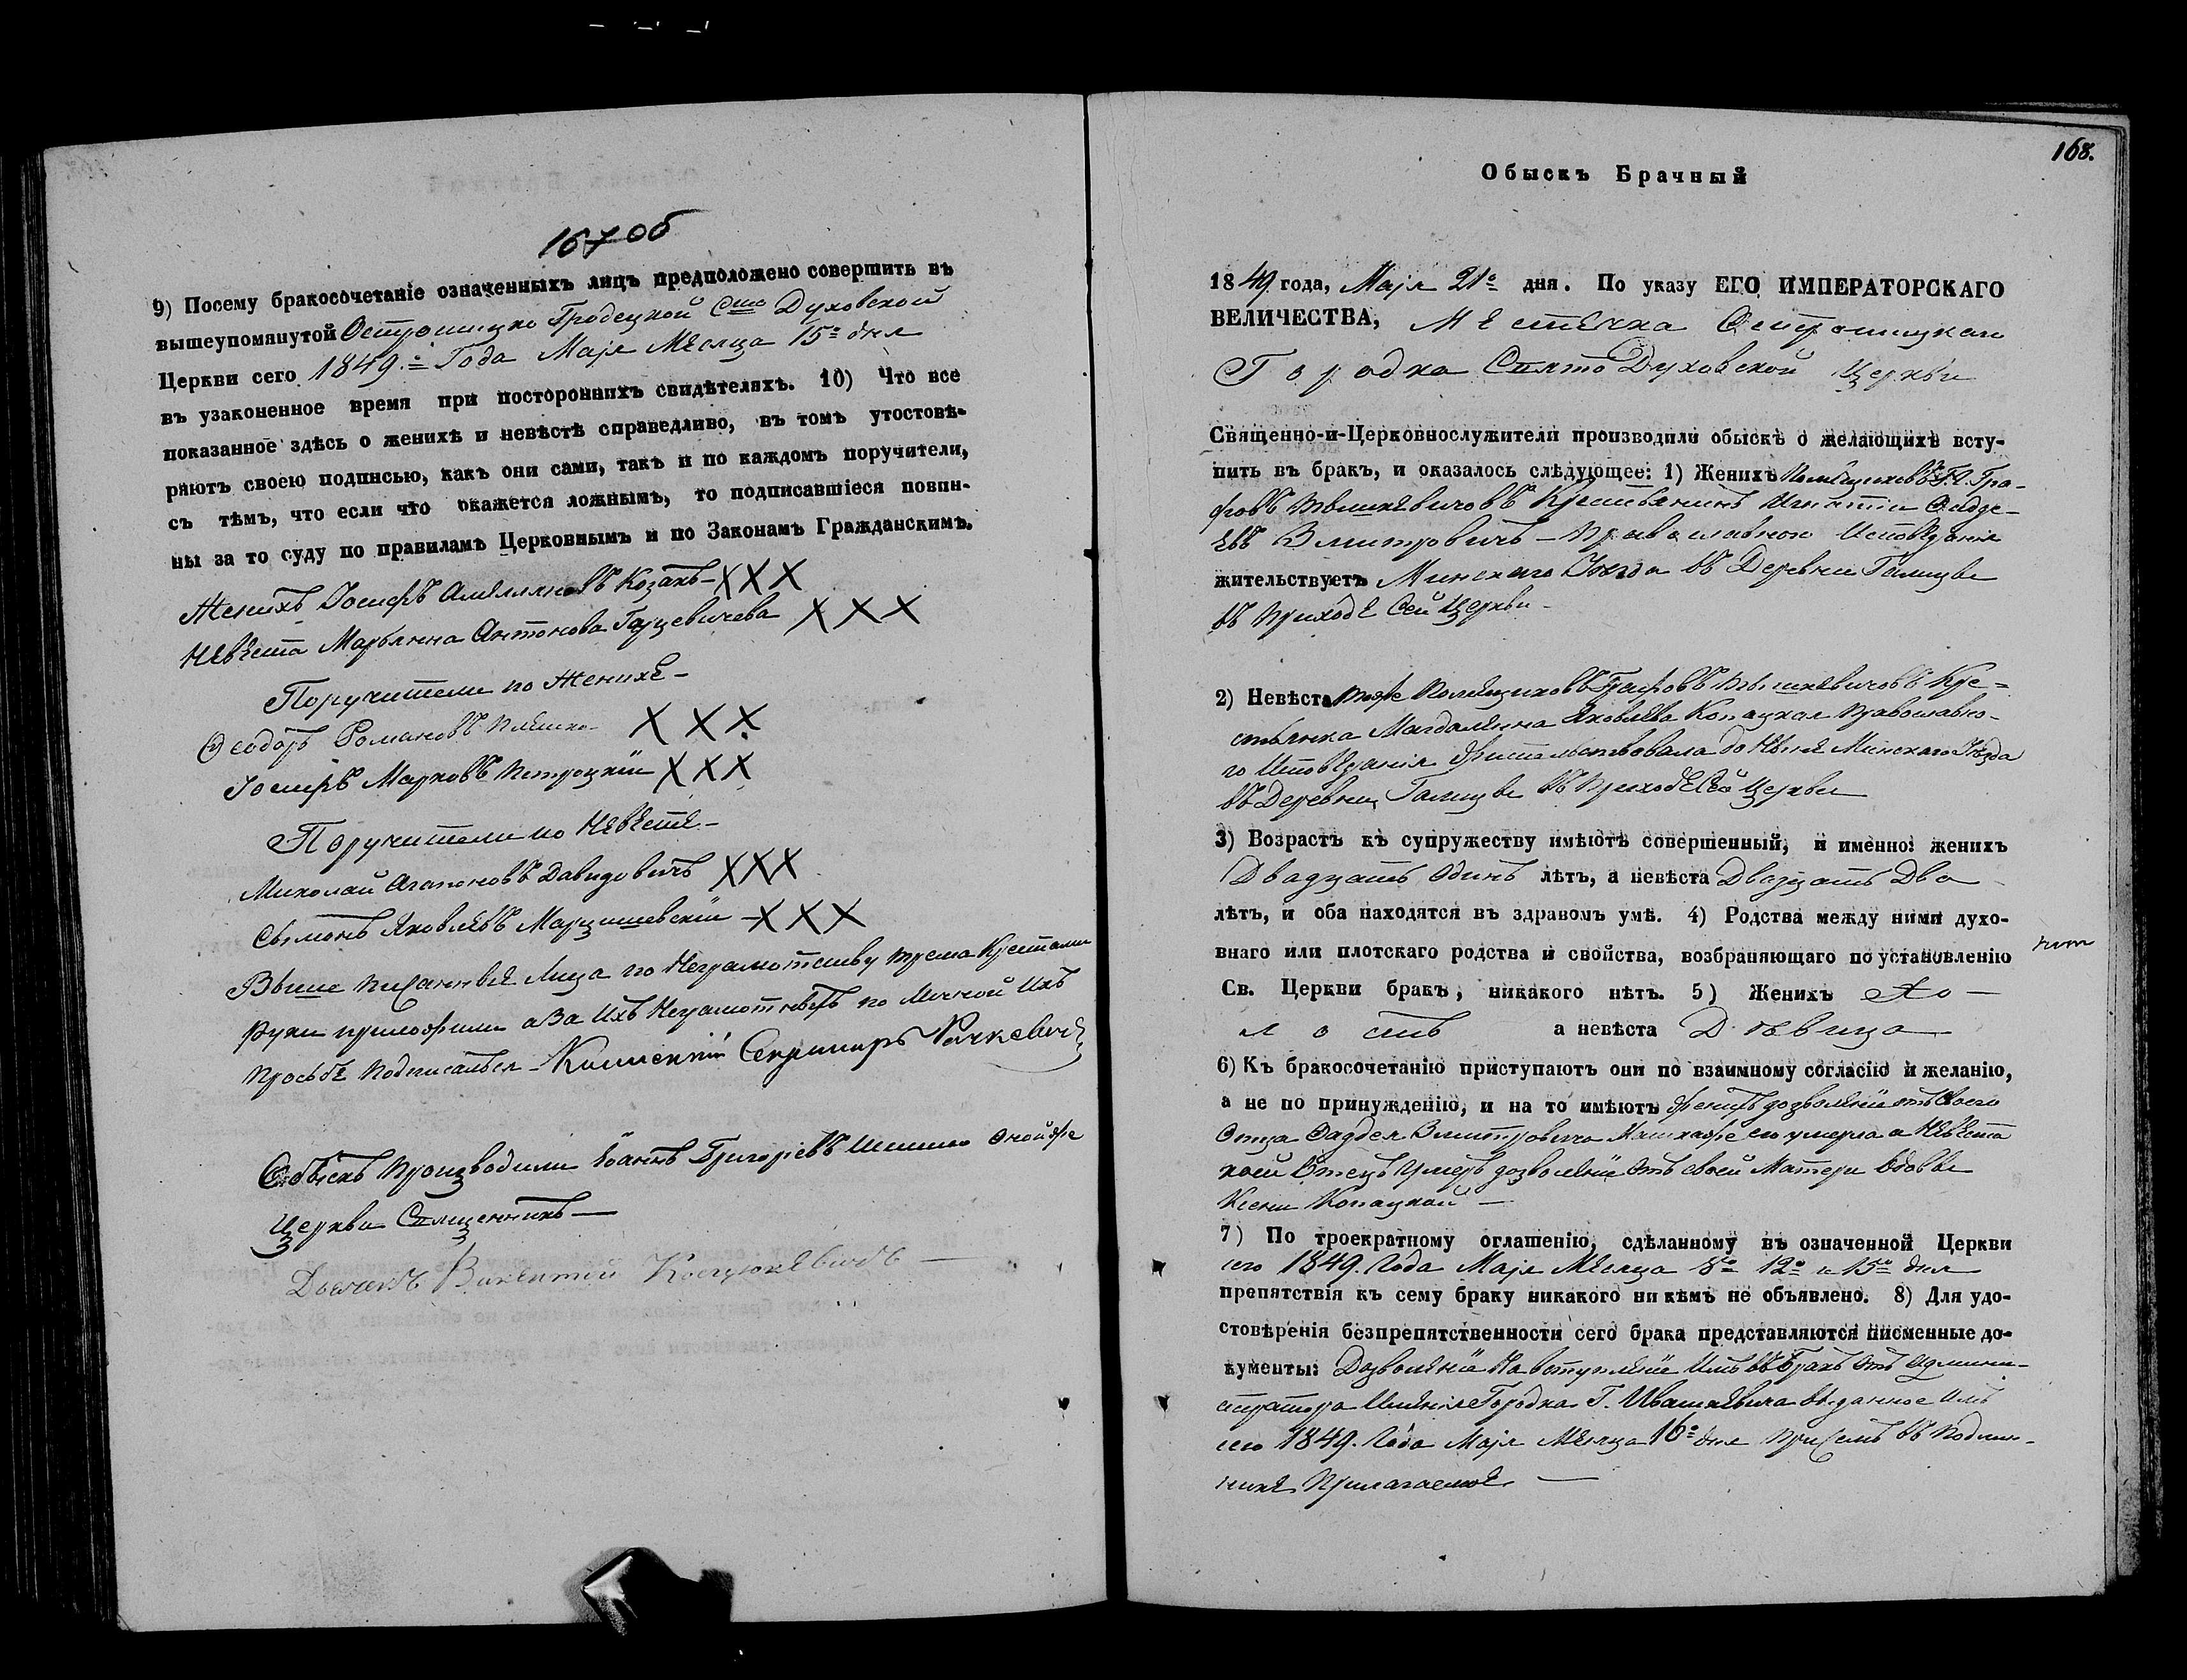 167 об
9) Посему бракосочетаніе означенныхъ лицъ предположено совершить въ
вышеупомянутой Остромицко Гродецкой Сто Духовской
Церкви сего 1849.о Года Маjя Мѣсяца 15о дня
въ узаконенное время при постороннихъ свидѣтеляхъ. 10) Что все
показанное здѣсь о женихѣ и невѣстѣ справедливо, въ томъ утостовѣ-
ряютъ своею подписью, какъ они сами, такъ и по каждомъ поручители,
съ тѣмъ, что если что окажется ложнымъ, то подписавшіеся повин-
ны за то суду по правиламъ Церковнымъ и по Законамъ Гражданскимъ.
Женихъ Іосифъ Амеляновъ Козакъ – XXX
Невѣста Марьянна Антонова Гацевичева XXX
Поручители по Женихѣ –
Ѳеодоръ Романовъ XXX
Іосифъ Марковъ Петроцкій XXX
Поручители по Невѣстѣ –
Миколай Агапоновъ Давидовичъ XXX
Сымонъ Яковлевъ Марцишевскій – XXX
Выше писанные Лица по Неграмотству трема Крестами
Руки приложили а За Ихъ Неграмотныхъ по Личной Ихъ
Просьбѣ Подписалься –
Обыскъ Производили Іоаннъ Григорьевъ оной же
Церкви Священникъ —
Дьячекъ Викентій Костюкевичъ —
168.
Обыскъ Брачный
1849 года, Маjя 21о дня. По указу ЕГО ИМПЕРАТОРСКАГО
ВЕЛИЧЕСТВА, Мѣстечка Остромицкаго
Городка Свято Духовской Церкви
Священно-и-Церковнослужители производили обыскъ о желающихъ всту-
пить въ бракъ, и оказалось слѣдующее: 1) Женихъ Помѣщиковъ Гра-
фовъ Тышкевичовъ Крестьянинъ Игнатій Фадде-
евъ Змитровичъ – Православного Исповѣданія
жительствуетъ Минского Уѣзда въ Деревни Галицы
въ Приходѣ Сей Церкви –
2) Невѣста тоже Помѣщиковъ Графовъ Тышкевичовъ Кре-
стьянка Магдалѣна Яковлева Копацкая Православно-
го Исповѣданія Жительствовала до Нынѣ Минскаго Уѣзда
въ Деревни Галицы въ Приходѣ Сей Церкви
3) Возрастъ къ супружеству имѣютъ совершенный, и именно: женихъ
Двадцать Одинъ лѣтъ, а невѣста Двадцать Два
лѣтъ, и оба находятся въ здравомъ умѣ. 4) Родства между ними духо-
внаго или плотскаго родства и свойства, возбраняющаго по установленію
Св. Церкви бракъ, никакого нѣтъ. 5) Женихъ Хо—
лостъ а невѣста Дѣвица
6) Къ бракосочетанію приступаютъ они по взаимному согласію и желанію,
а не по принужденію, и на то имѣютъ Женихъ дозволѣніе отъ своего
Отца Фаддея Змитровича Мать его умерла а Невѣста
коей Отецъ Умеръ дозволѣніе Отъ своей Матери Вдовы
Ксени Копацкой —
7) По троекратному оглашенію, сдѣланному въ означенной Церкви
сего 1849. Года Маjя Мѣсяца 8о 12о и 15о дня
препятствія къ сему браку никакого ни кѣмъ не объявлено. 8) Для удо-
стовѣренія безпрепятственности сего брака представляются писменные до-
кументы: Дозволѣніе На вступлѣніе Имъ въ Бракъ Отъ Админи-
стратора Имѣнія Городка Г. Ивашкѣвича выданное Имъ
сего 1849. Года Маjя Мѣсяца 16о дня При Семъ въ Подлин-
никѣ Прилагаемое —